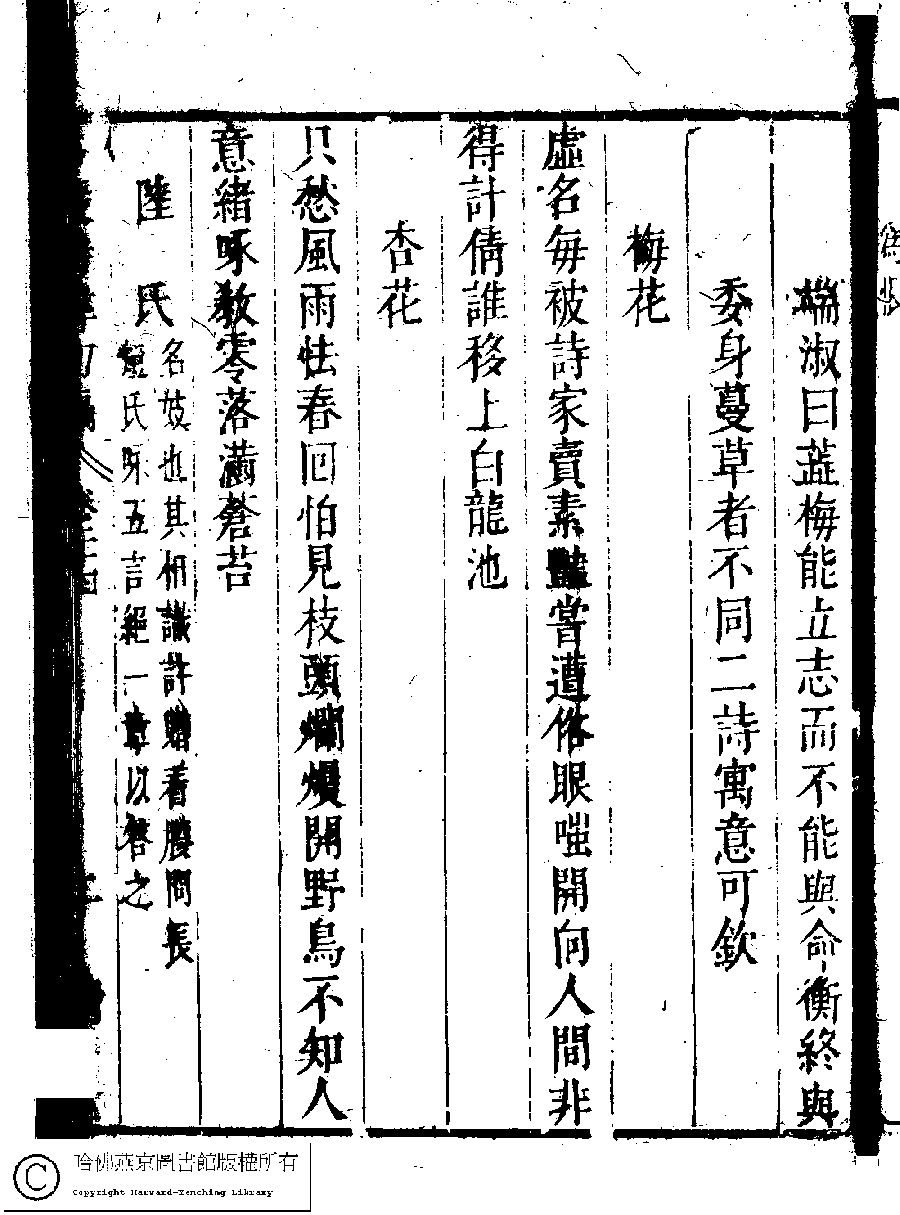 端淑曰蓋梅能立志而不能與命衡終與
委身蔓草者不同二詩寓意可欽
梅花
虛名每被詩家賣素豔嘗遭俗眼嗤開向人間非
得計倩誰移上白龍池
杏花
只愁風雨怯春回怕見枝頭爛熳開野鳥不知人
意緒啄教零落滿蒼苔
陸氏
名妓也其相識許贈着賸問長
短氏歌五言絕一章以答之
哈佛燕京圖書館版權所有
Copyright Harvard-Yenching Library